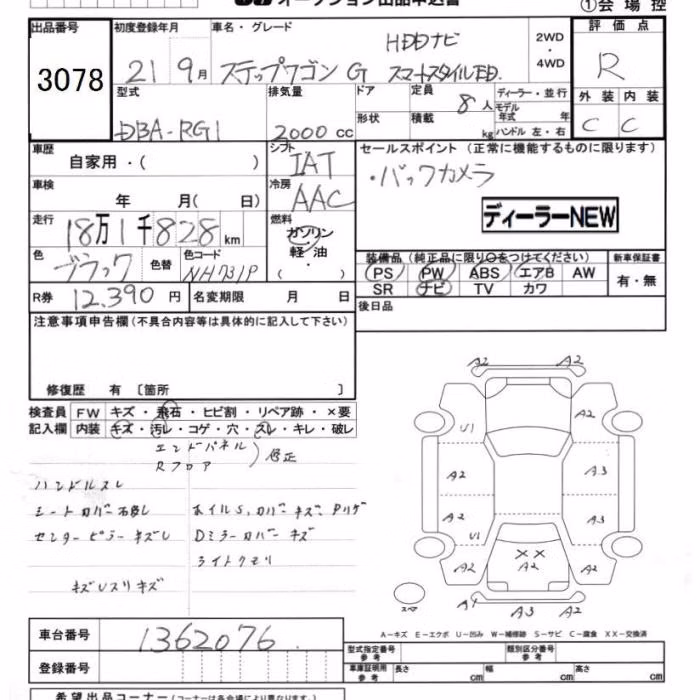 オークション出品申込書
①会場控
出品番号 3078
初度登録年月 21 9月
車名・グレード HDDナビ
ステップワゴン G スマートスタイルED.
2WD・4WD
評価点 R
外装 内装
C C
型式 DBA-RG1
排気量 2000 cc
ドア 形状
定員 8人
積載 kg
ディーラー・並行
モデル年式 年
ハンドル 左・右
車歴 自家用・( )
シフト IAT
セールスポイント (正常に機能するものに限ります)
・バックカメラ
ディーラーNEW
車検 年 月( 日)
冷房 AAC
走行 18万1千828 km
燃料 ガソリン・軽油・( )
色 ブラック 色替
色コード NH731P
装備品 (純正品に限り○をつけてください)
新車保証書 有・無
PS PW ABS エアB AW
SR ナビ TV カワ
R券 12,390 円
名変期限 月 日
後日品
注意事項申告欄 (不具合内容等は具体的に記入して下さい)
修復歴 有 〔箇所 〕
検査員記入欄
FW キズ・飛石・ヒビ割・リペア跡・×要
内装 キズ・汚レ・コゲ・穴・スレ・キレ・破レ
エンドパネル
Rフロア
修正
ハンドルスレ
シートカバー汚レ
センターピラーキズレ
ホイルS,カバーキズ
Dミラーカバーキズ
ライトクモリ
A2 A2
U1 A2
A2 A3
A2 A3
U1
A2 ×× A2 A2
スペア
A4 A3 A2
A-キズ E-エクボ U-凹み W-補修跡 S-サビ C-腐食 XX-交換済
車台番号 1362076
登録番号
型式指定番号 参考
類別区分番号 参考
車庫証明用 参考 長さ cm 幅 cm 高さ cm
希望出品コーナー